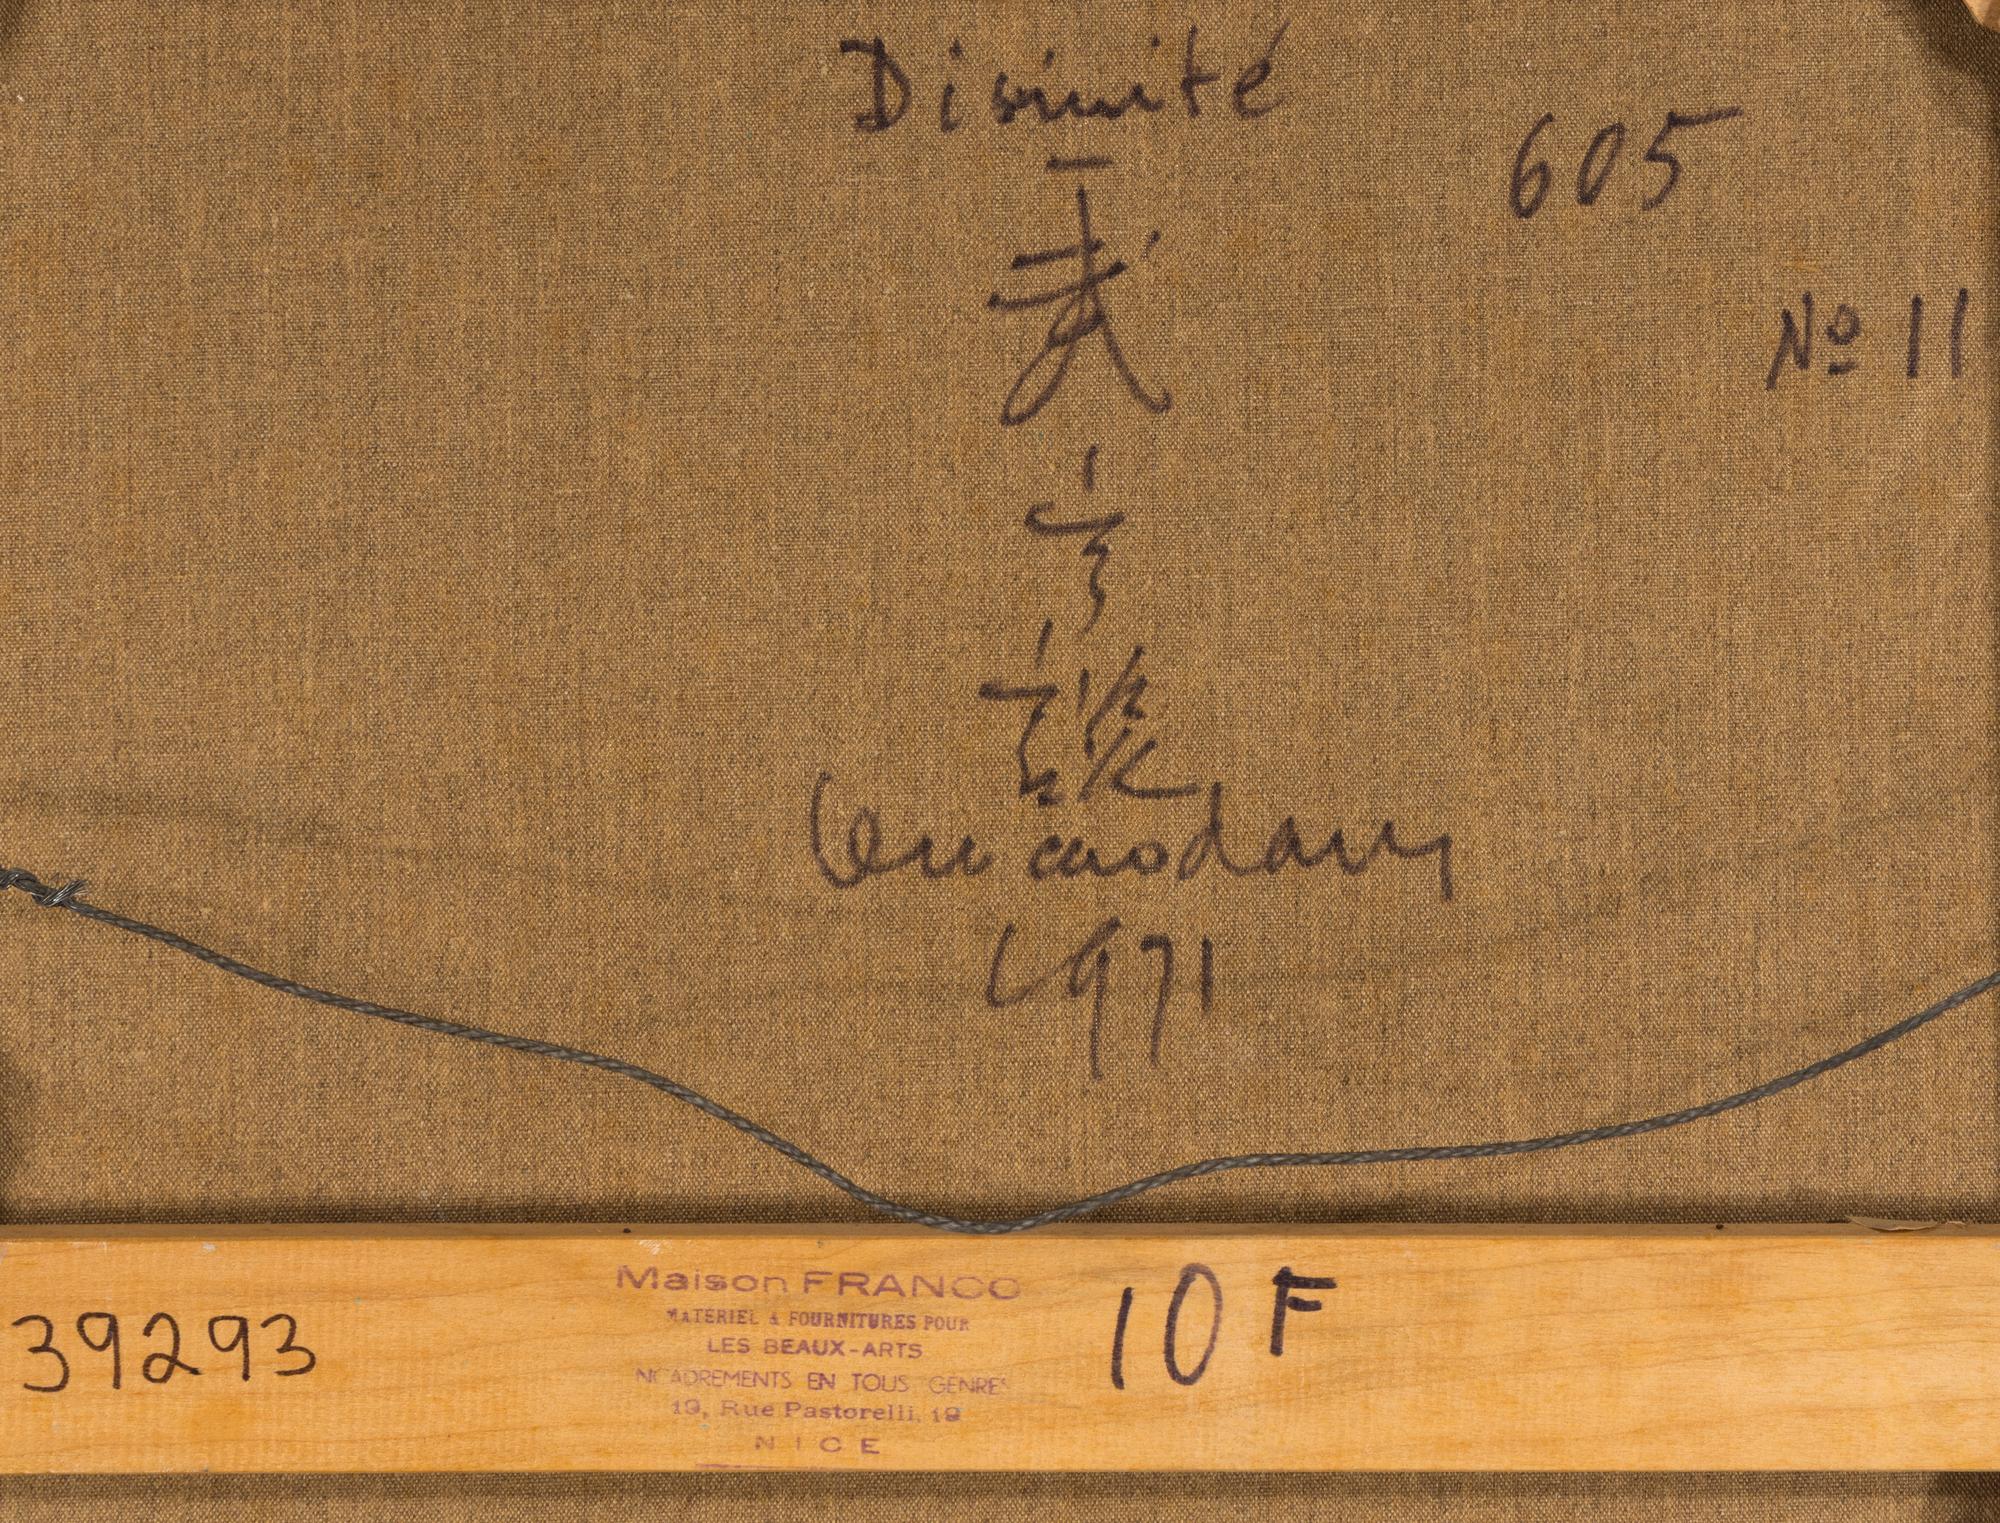 Divinité
605
No 11
武
高
談
Vu cao dam
1971
39293
Maison FRANCO
MATERIEL & FOURNITURES POUR
LES BEAUX-ARTS
NCADREMENTS EN TOUS GENRES
19, Rue Pastorelli, 19
NICE
10 F